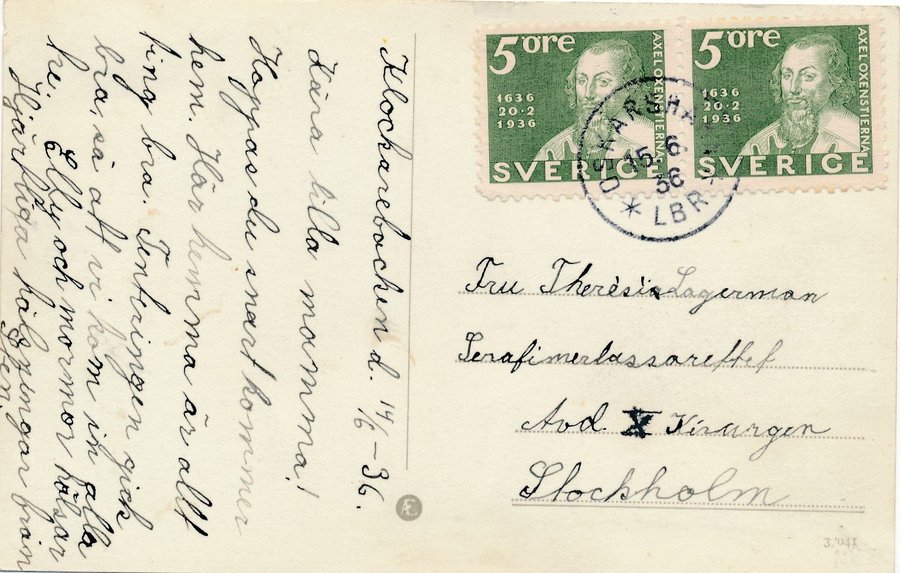 Klockarebacken d. 14/6 -36.
Kära lilla mamma!
Hoppas du snart kommer
hem. Här hemma är allt
ting bra. Tenteringen gick
bra, så att vi kom in alla
tre. Elly och mormor hälsar
Hjärtliga hälsningar från
Sten.
5 öre
1636
20·2
1936
AXEL OXENSTIERNA
SVERIGE
5 öre
1636
20·2
1936
AXEL OXENSTIERNA
SVERIGE
OSKARSHAMN
15.6.
36
* LBR *
Fru Therésia Lagerman
Serafimerlassarettet
Avd. X Kirurgen
Stockholm
3/041